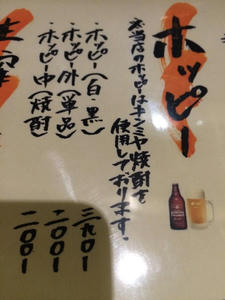 ホッピー
当店のホッピーはキンミヤ焼酎を
使用しております。
・ホッピー（白・黒） 三九〇ー
・ホッピー外（単品） 二〇〇ー
・ホッピー中（焼酎） 二〇〇ー